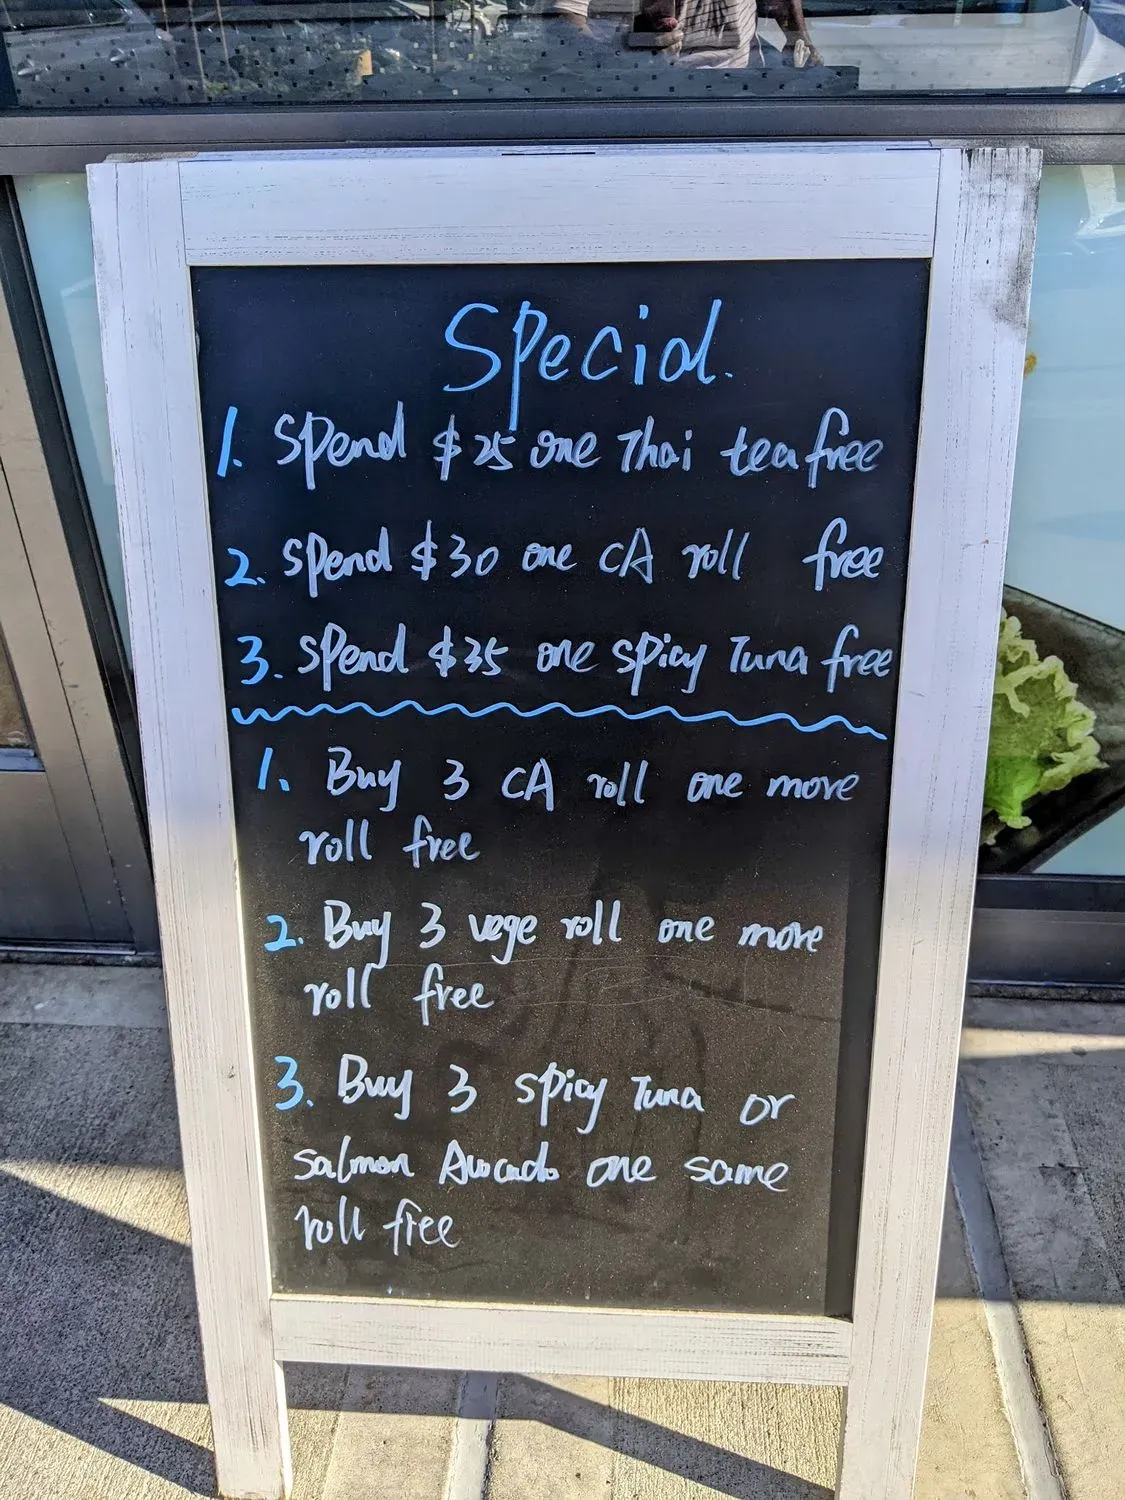 Special.
1. Spend $25 one Thai tea free
2. Spend $30 one CA roll free
3. Spend $35 one spicy Tuna free
1. Buy 3 CA roll one more
roll free
2. Buy 3 vege roll one more
roll free
3. Buy 3 spicy Tuna or
salmon Avocado one same
roll free